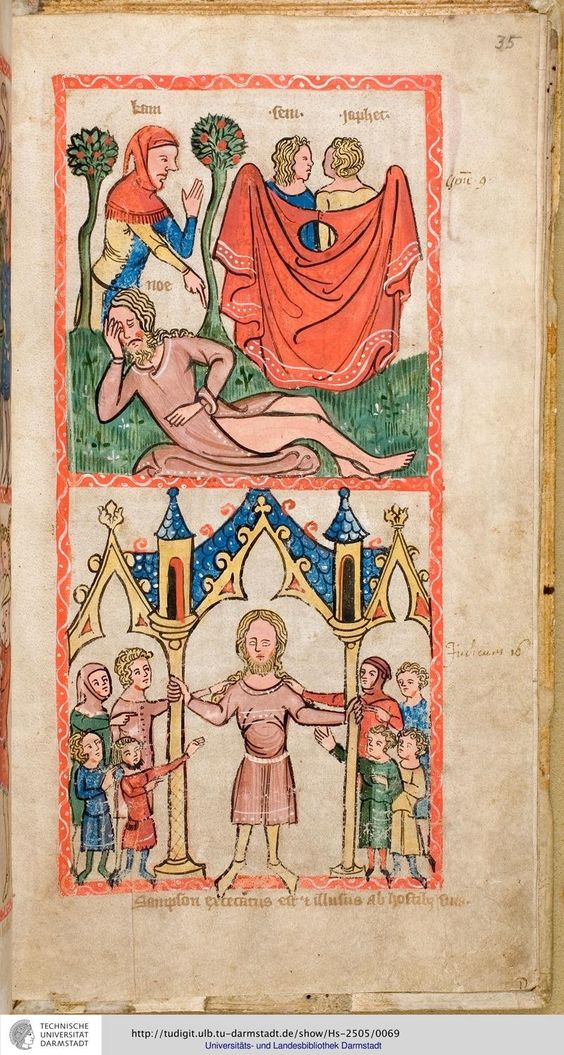 35
kam
·sem·
·japhet·
Gen̄ · 9 ·
noe
Judicum 16
Sampson excecatus est ⁊ illusus ab hostibꝫ suis.
TECHNISCHE
UNIVERSITÄT
DARMSTADT
http://tudigit.ulb.tu-darmstadt.de/show/Hs-2505/0069
Universitäts- und Landesbibliothek Darmstadt